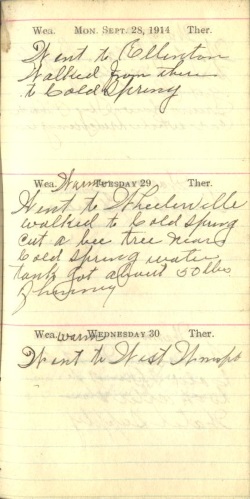 Wea. MON. SEPT. 28, 1914 Ther.
Went to Ellinton
Walked from there
to Cold Spring
Wea. Warm TUESDAY 29 Ther.
Went to Wheelerville
walked to Cold Spring
cut a bee tree near
Cold Spring water
tank got about 50 lbs
honey
Wea. warm WEDNESDAY 30 Ther.
Went to West